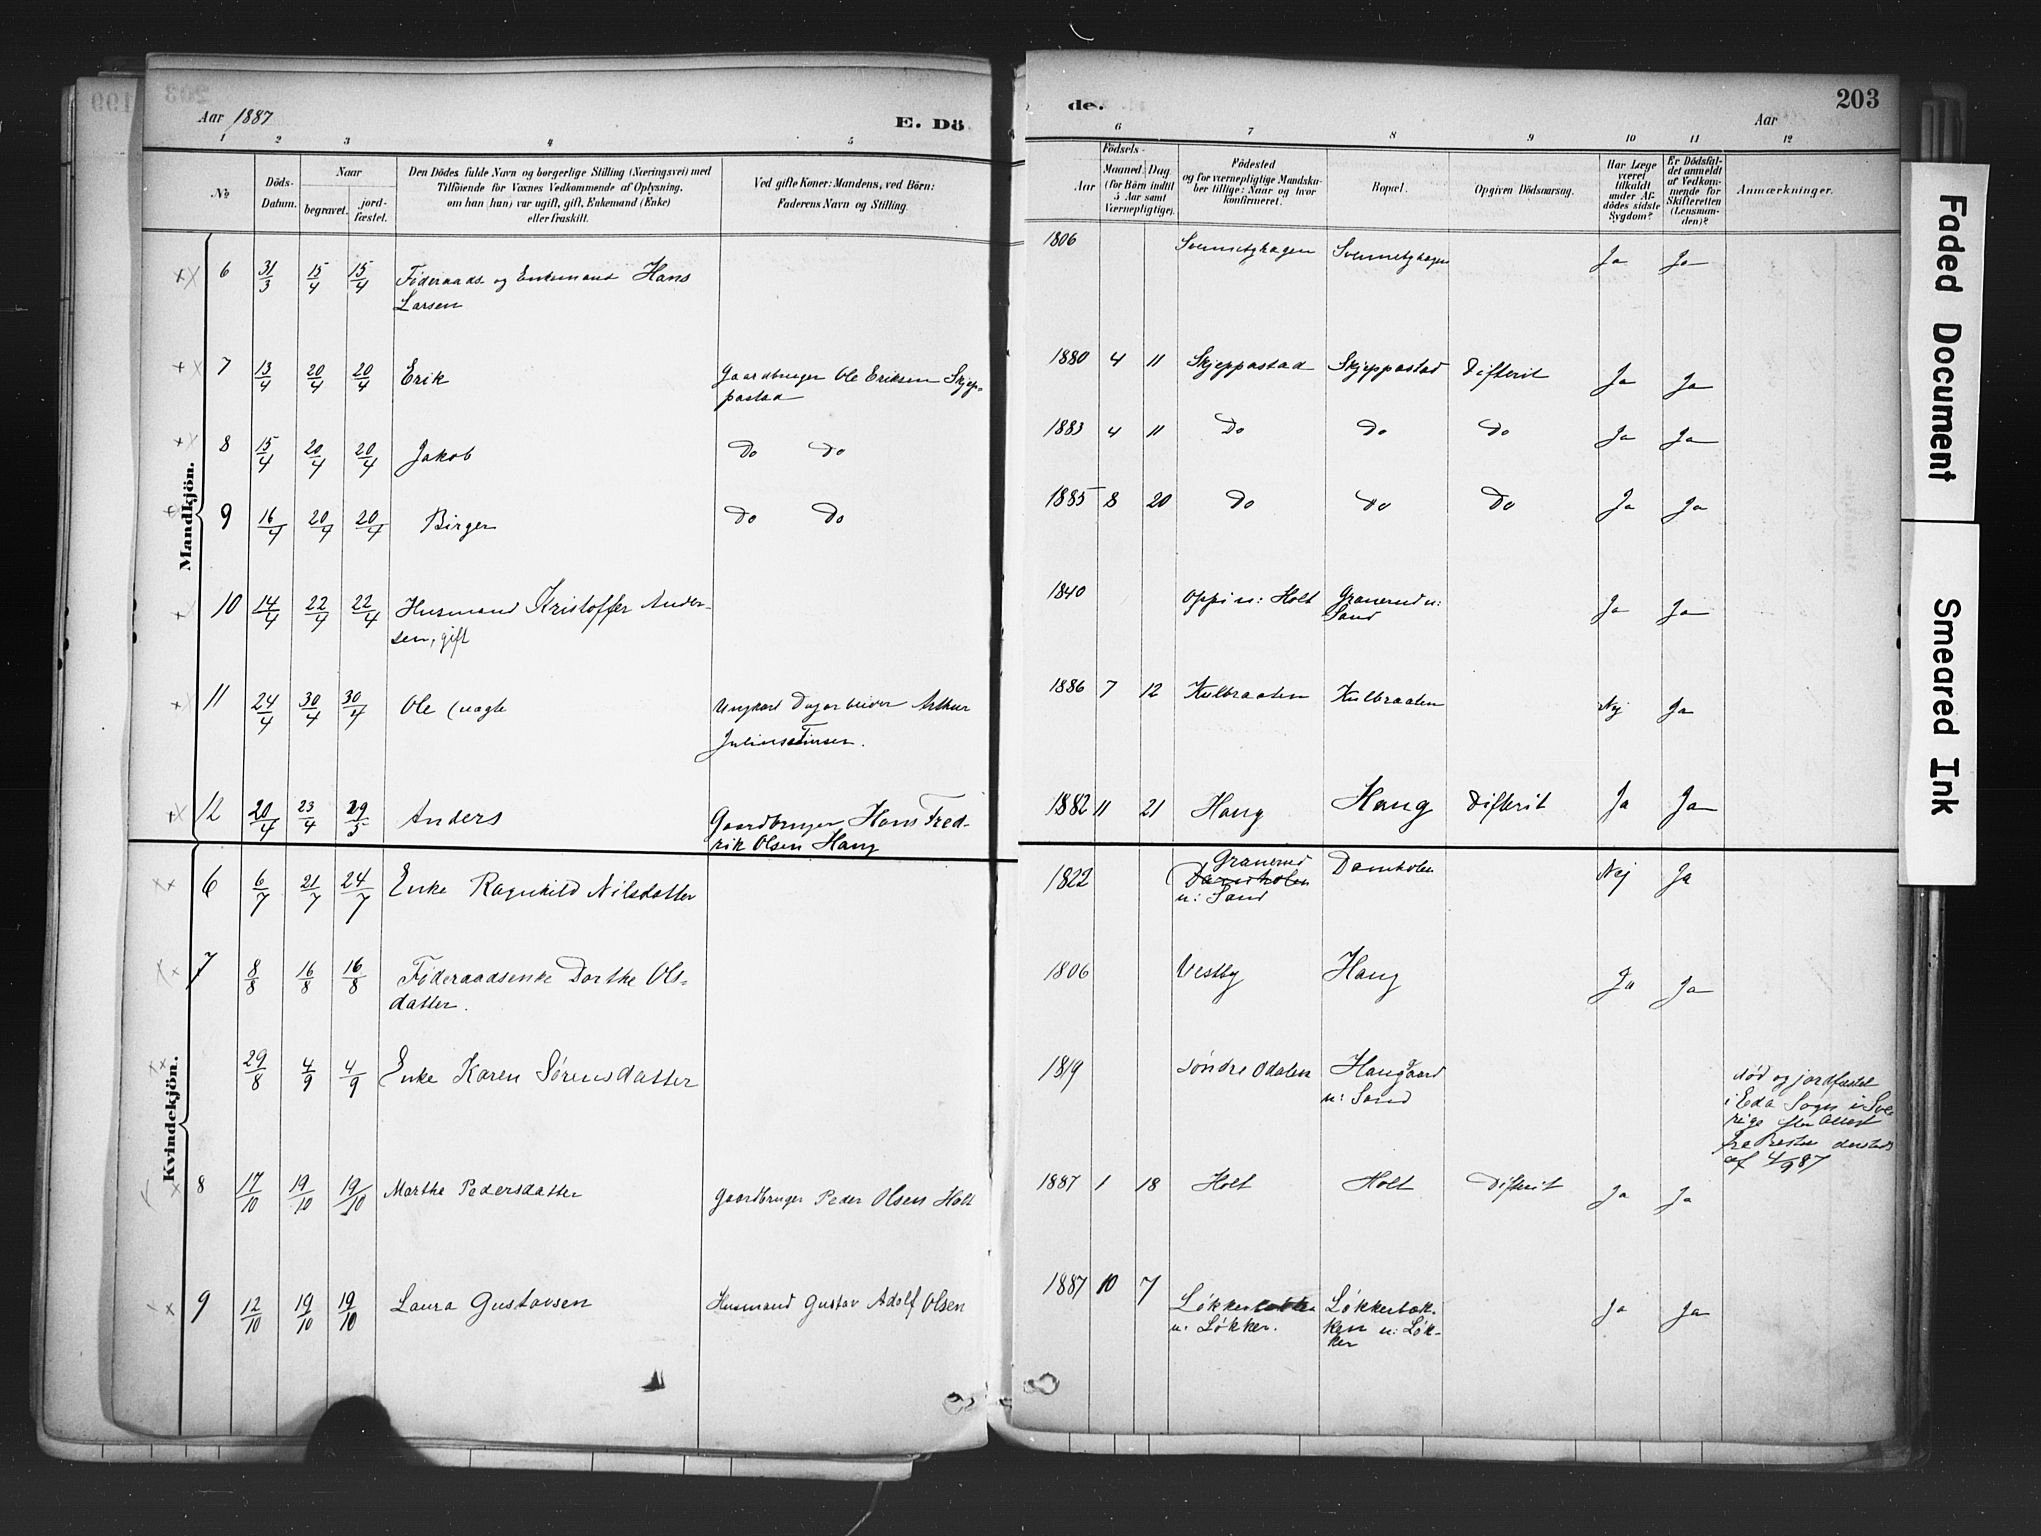 203
Aar 1887
E. Dö
de.
Aar
1 2 3 4 5 6 7 8 9 10 11 12
No.
Döds-Datum.
Naar
begravet.
jord-fæstet.
Den Dödes fulde Navn og borgerlige Stilling (Næringsvei) med
Tilföiende for Voxnes Vedkommende af Oplysning,
om han (hun) var ugift, gift, Enkemand (Enke)
eller fraskilt.
Ved gifte Koner: Mandens, ved Börn:
Faderens Navn og Stilling.
Födsels-
Aar
Maaned. Dag
(for Börn indtil
5 Aar samt
Værnepligtige).
Födested
og for værnepligtige Mandska-
ber tillige: Naar og hvor
konfirmeret.
Bopæl.
Opgiven Dödsaarsag.
Har Læge
været
tilkaldt
under Af-
dödes sidste
Sygdom?
Er Dödsfal-
det anmeldt
af Vedkom-
mende for
Skifteretten
(Lensman-
den)?
Anmærkninger.
Mandkjön.
6 31/3 15/4 15/4 Føderaads og Enkemand Hans
Larsen
1806 Ja Ja
7 13/4 20/4 20/4 Erik
Gaardbruger Ole Eriksen Skjep-
pastad
1880 4 11 Skjeppastad Skjeppastad Difterit Ja Ja
8 15/4 20/4 20/4 Jakob Do Do
1883 4 11 Do Do Do Ja Ja
9 16/4 20/4 20/4 Birger Do Do
1885 8 20 Do Do Do Ja Ja
10 14/4 22/4 22/4 Husmand Kristoffer Ander-
sen, gift
1840 Oppi u: Holt Granerud u:
Sand
Ja Ja
11 24/4 30/4 30/4 Ole (uægte
Ungkarl Dagarbeider Arthur
1886 7 12 Kulbraaten Kulbraaten Nej Ja
12 20/4 23/4 29/5 Anders
Gaardbruger Hans Fred-
rik Olsen Haug
1882 11 21 Haug Haug Difterit Ja Ja
Kvindekjön.
6 6/7 21/7 24/7 Enke Ragnhild Nilsdatter
1822 Granerud
Damholen
u: Sand
Damholen Nej Ja
7 8/8 16/8 16/8 Føderaadsenke Dorthe Ols-
datter.
1806 Vestby Haug Ja Ja
29/8 4/9 4/9 Enke Karen Sørensdatter
1819 Søndre Odalen Haugaard
u: Sand
død og jordfæstet
i Eda Sogn i Sve-
rige efter Attest
fra Presten dersteds
af 4/9 87
8 17/10 19/10 19/10 Marthe Pedersdatter
Gaardbruger Peder Olsen Holt
1887 1 18 Holt Holt Difterit Ja Ja
9 12/10 19/10 19/10 Laura Gustavsen
Husmand Gustav Adolf Olsen
1887 10 7
u: Løkker.
Løkkerbak-
ken u: Løk-
ker
Ja Ja
Faded Document
Smeared Ink